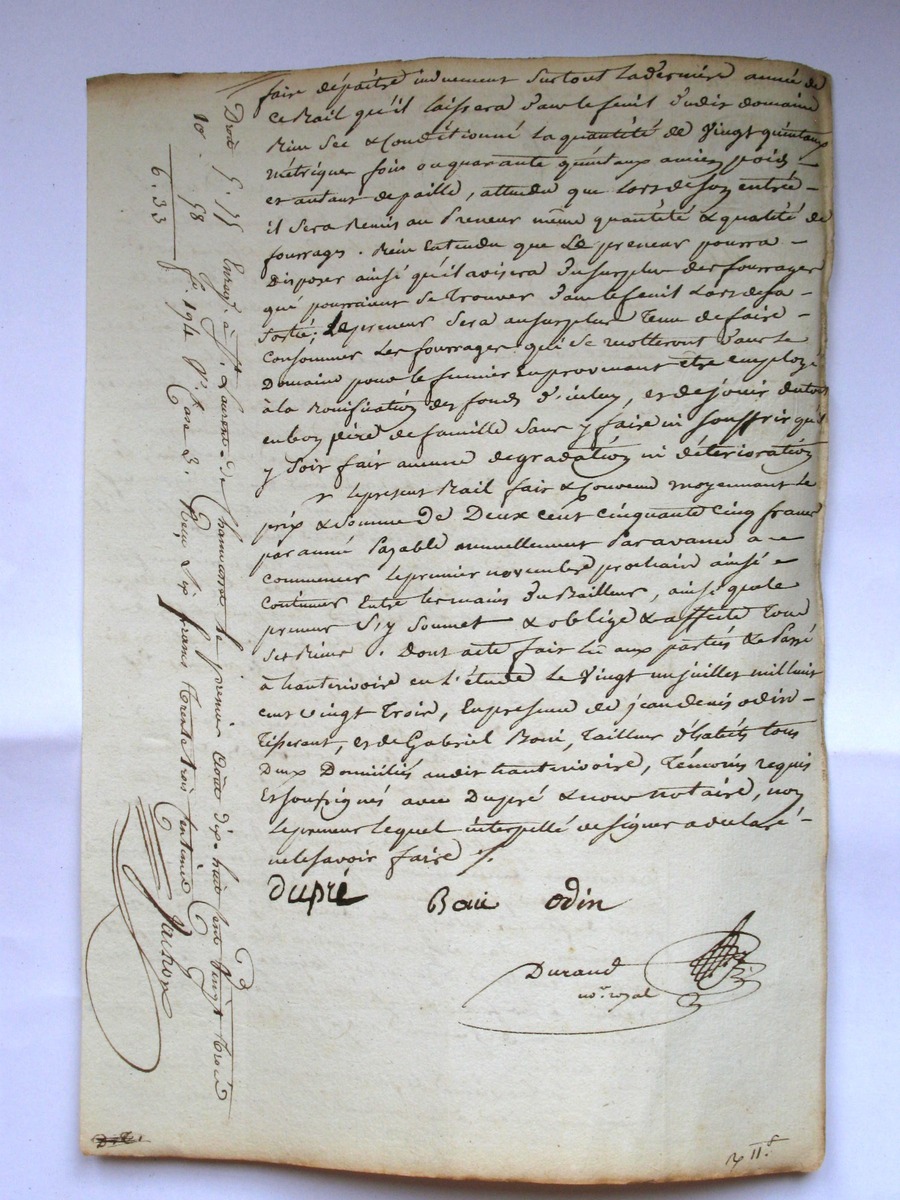 faire dépaitre induement surtout la derniére année de
ce Bail qu'il laissera dans le fenil dudit domaine
Bien sec & Conditionné la quantité de Vingt quintaux
métriques foin ou quarante quintaux ancien poids
et autant de paille, attendu que lors de son entrée
il sera Remis au Preneur même quantité & qualité de
fourrages. Bien Entendu que Le preneur pourra
Disposer ainsi qu'il avisera du surplus des fourrages
qui pourraient se trouver dans le fenil Lors de sa
sortie; Le preneur sera au surplus Tenu de faire
Consommer Les fourrages qui se recolteront dans le
Domaine pour le fumier En provenant etre employé
à la Bonification des fonds d'iceluy, et de jouir du tout
en bon pére de famille sans y faire ni souffrir qu'il
y soit fait aucune dégradation ni détérioration
le present Bail fait & Convenu moyennant le
prix & somme de Deux cent cinquante cinq francs
par année Payable annuellement Par avance a
commencer le premier novembre prochain ainsi
Continuer Entre les mains du Bailleur, ainsi que le
preneur S'y Soumet & oblige & affecte Tous
ses Biens. Dont acte fait lû aux parties & Passé
à hauterivoire en l'étude Le Vingt un juillet mil huit
cent vingt Trois, En presence de jean denis odin
Tisserant, et de Gabriel Boui, Tailleur d'habits tous
Deux Domiciliés audit hauterivoire, Témoins requis
Et soussignés avec Dupré & nous notaire, non
Le preneur Lequel interpellé de signer a declaré
ne le savoir faire
dupré Boui odin
Durand
no.re royal
Droits 5. 75 Enreg.é à S.t Laurent de Chamousset le premier Aout dix-huit Cent Vingt trois
10.e 58 f.o 194 V.o Case 2. Reçu Six francs trente trois Centimes
6. 33